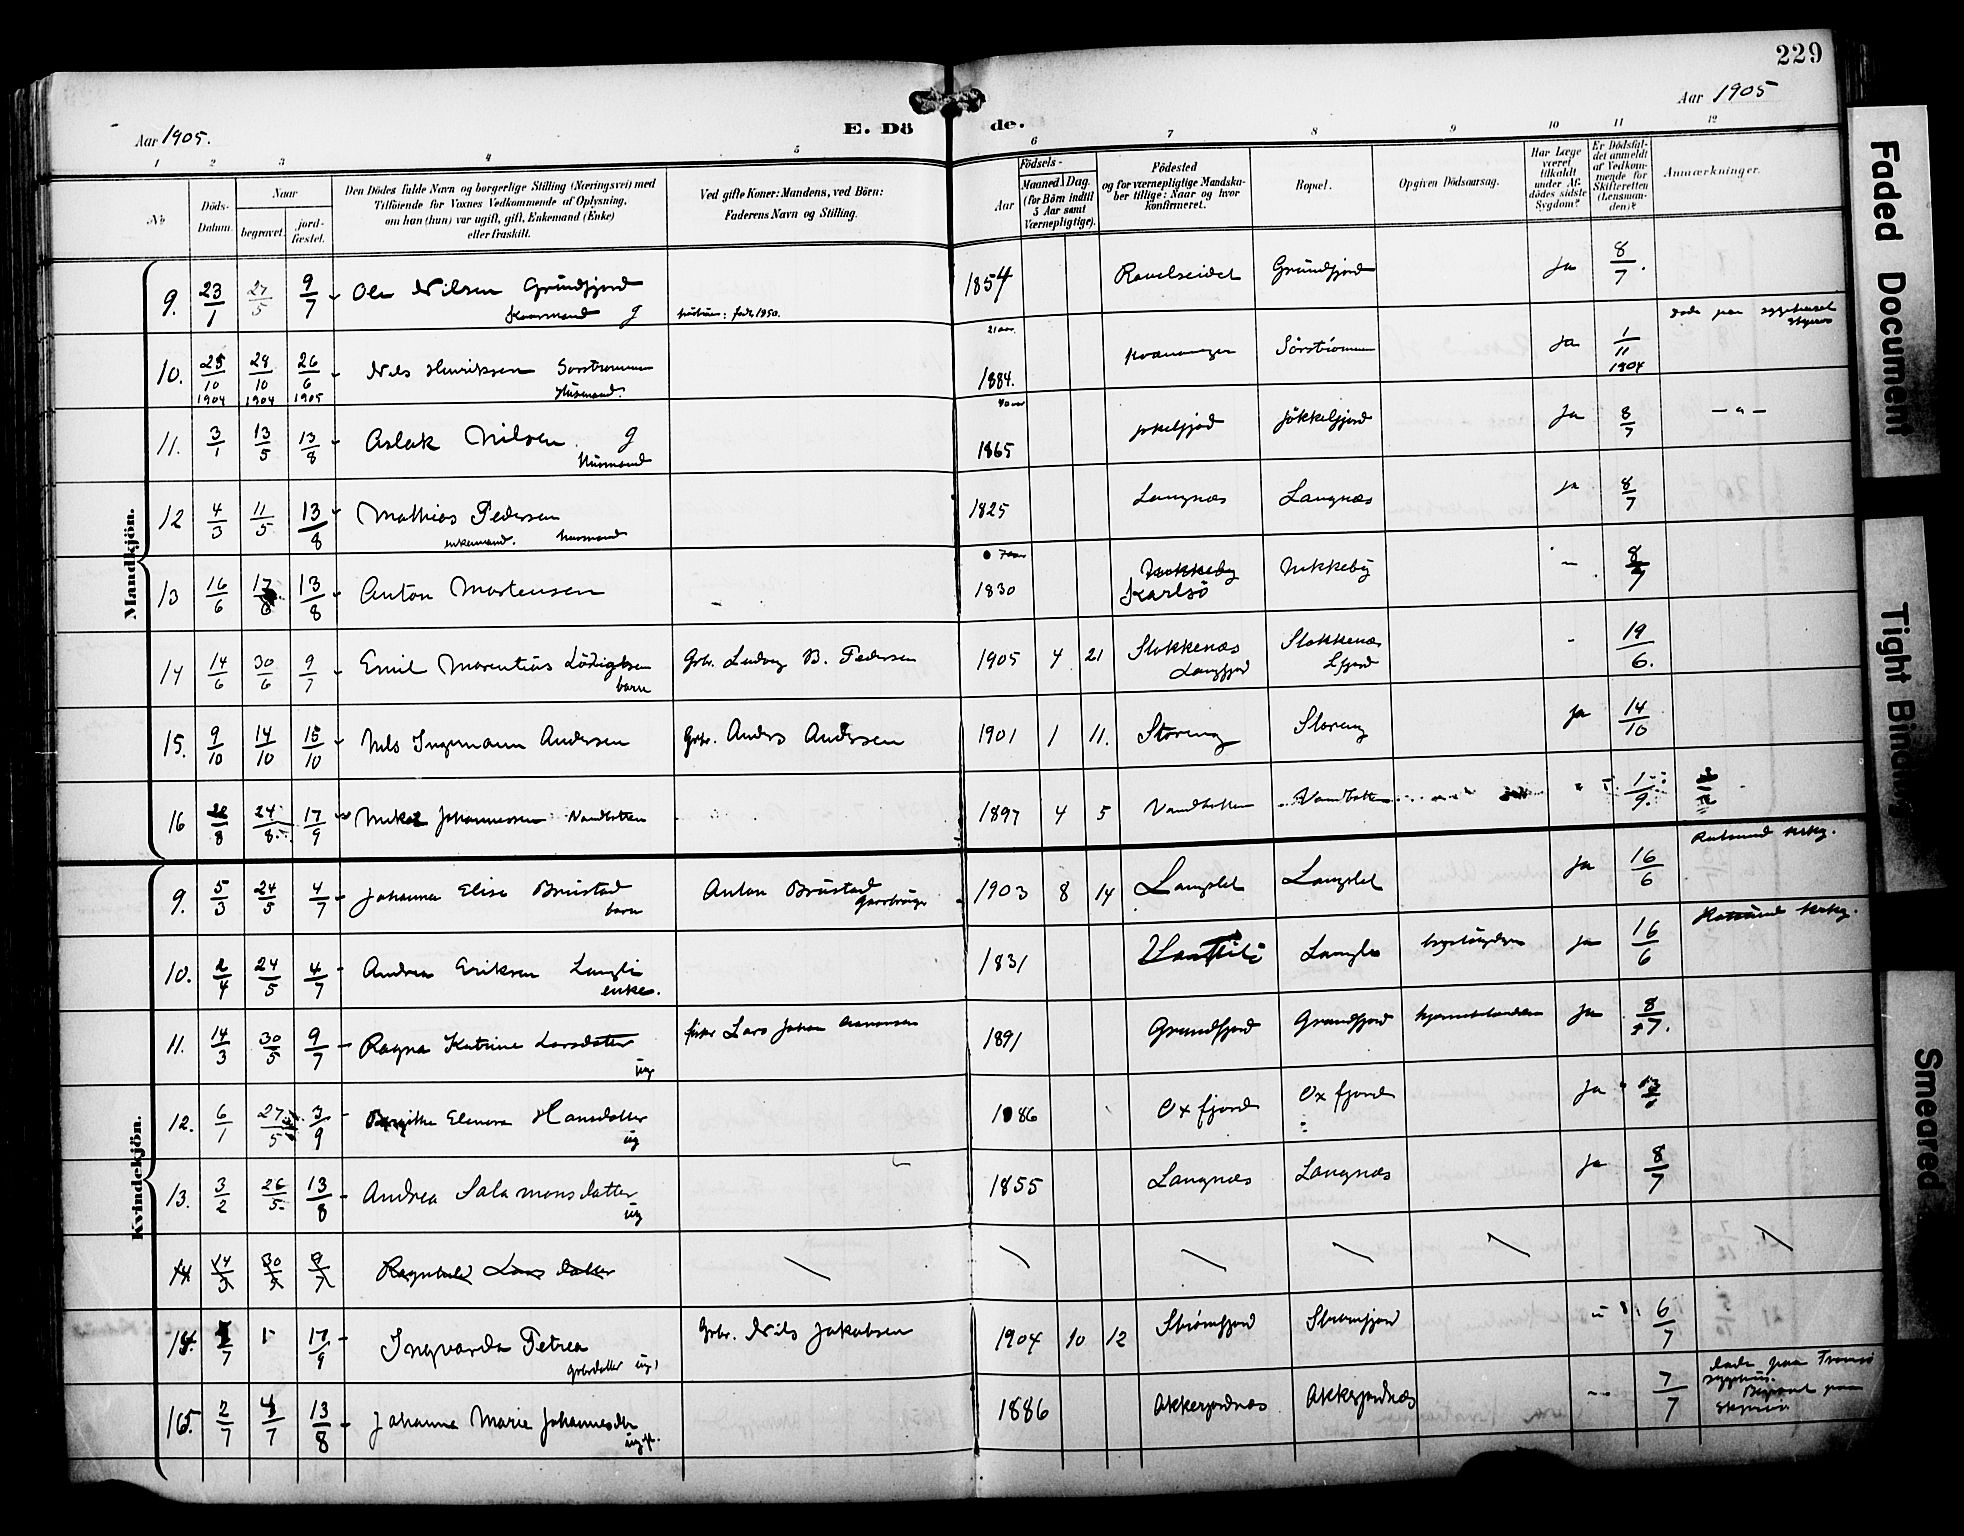 229
Aar 1905.
E. Döde.
Aar 1905
1 2 3 4 5 6 7 8 9 10 11 12
No
Döds-Datum.
Naar
begravet.
jord-fæstet.
Den Dödes fulde Navn og borgerlige Stilling (Næringsvei) med
Tilföiende for Voxnes Vedkommende af Oplysning,
om han (hun) var ugift, gift, Enkemand (Enke)
eller fraskilt.
Ved gifte Koner: Mandens, ved Börn:
Faderens Navn og Stilling.
Födsels-
Aar
Maaned. Dag.
(for Börn indtil
5 Aar samt
Værnepligtige).
Födested
og for værnepligtige Mandska-
ber tillige: Naar og hvor
konfirmeret.
Bopæl.
Opgiven Dödsaarsag.
Har Læge
været
tilkaldt
under Af-
dödes sidste
Sygdom?
Er Dödsfal-
det anmeldt
af Vedkom-
mende for
Skifteretten
(Lensman-
den)?
Anmærkninger.
Mandkjön.
9. 23/1 27/5 9/7 Ole Nilsen Grundfjord g 1854 Ravelseidet Grundfjord Ja 8/7.
10. 25/10 1904 29/10 1904 26/6 1905 Nils Henriksen Sorstrommen Husmand. 21 aar 1884. Kvænangen Sörströmmen Ja 1/11 1904 døde paa sygehuset
11. 3/1 13/5 13/8 Aslak Nilsen g Husmand 40 aar 1865 Jøkelfjord Jökkelfjord Ja 8/7 – " –
12 4/3 11/5 13/8 Mathias Pedersen enkemand. Husmand 1825 Langnæs Langnæs Ja 8/7
13 16/6 17/6 13/8 Anton Mortensen 1830 Karlsö Nikkeby – 8/7
14 14/6 30/6 9/7 Emil Marentius Lödigtsen barn Grbr. Ludvig B. Pedersen 1905 4 21 Stokkenæs Langfjord Stokkenæs Lfjord - 19/6.
15. 9/10 14/10 15/10 Nils Ingemann Andersen Grbr. Anders Andersen 1901 1 11. Storeng Storeng Ja 14/10
16 /8 24/8. 17/9 Mikal Johannessen Vandbotten 1897 4 5 Vandbotten Vandbotten 1/9.
Kvindekjön.
9. 5/3 24/5 4/7 Johanna Elise Brustad barn Anton Brustad Gaardbruger 1903 8 14 Langslet Langslet Ja 16/6 Rotsund kirkg.
10. 2/4 24/5 4/7 Andrea Eriksen Langli enke. 1831 Langli Ja 16/6 Rotsund kirkg.
11. 14/3 30/5 9/7 Ragna Katrine Larsdatter ug fisker Lars Johan Aronsen 1891 Grundfjord Grundfjord Ja 8/7.
12. 6/1 27/5 3/9 Birgithe Elenora Hansdatter ug 1886 Oxfjord Oxfjord Ja
13. 3/2 26/5. 13/8 Andrea Salamonsdatter ug 1855 Langnæs Langnæs Ja 8/7
14 14/3 30/5 9/7 Ragnhild Lars datter
14. /7 17/9 Ingvarda Petrea grbrdatter ug) Grbr. Nils Jakobsen 1904 10 12 Strömfjord Stromfjord 6/7
15. 2/7 4/7 13/8 Johanna Marie Johannesdtr ugft. 1886 Akkerfjordnæs Akkerfjordnæs 7/7 døde paa Tromsø sygehus. Begravet paa Skjervø
Faded Document
Tight Binding
Smeared